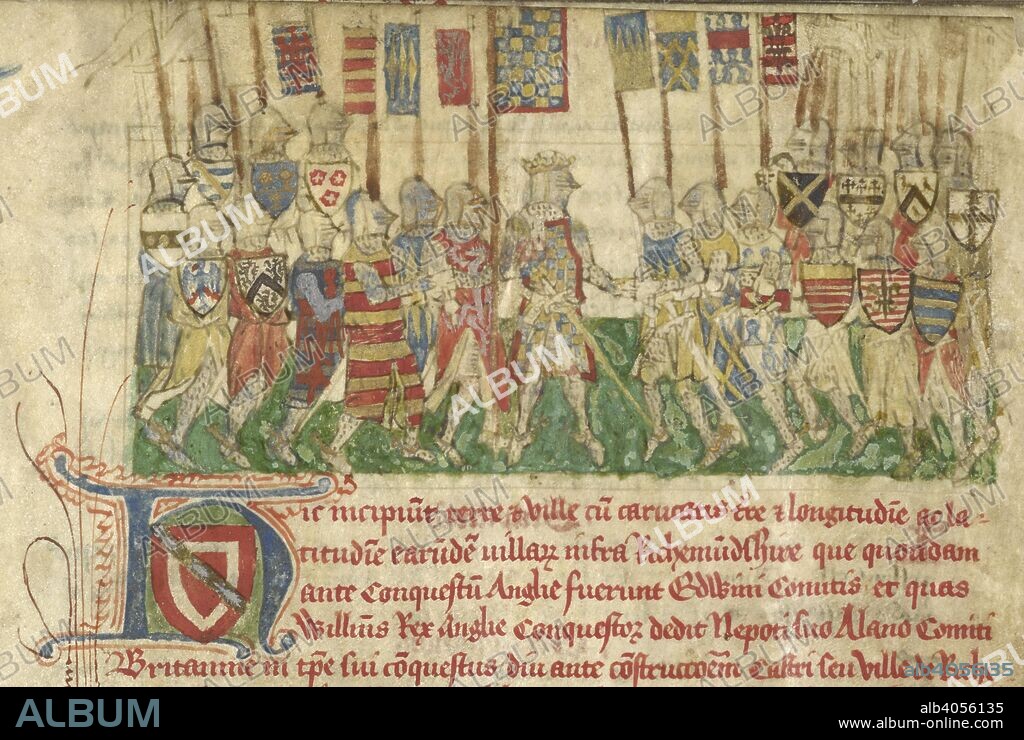 Hic incipiūt terre ⁊ ville cū carucatis ⁊ longitudīe ac la-
titudīe earūdē villaꝝ infra Richemūdshire que quondam
ante Conquestū Anglie fuerunt Edwini Comitis et quas
Willms Rex Anglie Conquestor dedit Nepoti suo Alano Comiti
Britannie in tp̄e sui cōquestus diu ante cōstruccōem Castri seu ville de
ALBUM
alb4056135
www.album-online.com